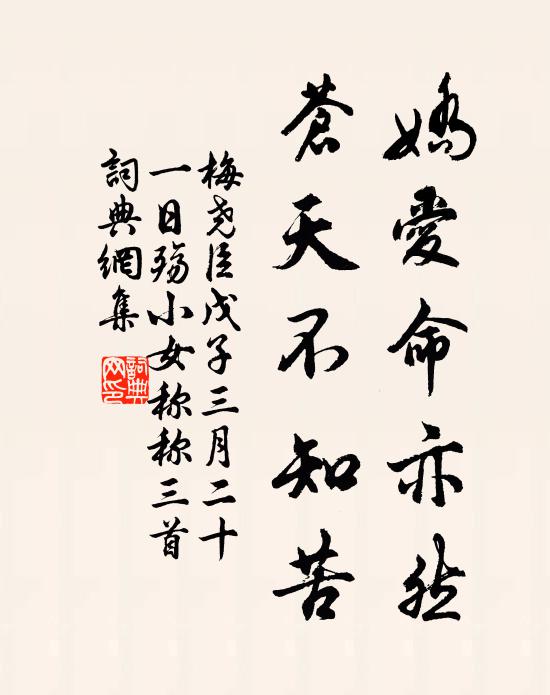 嬌愛命亦然
蒼天不知苦
梅尧臣戊子三月二十
一日殇小女称称三首
詞典網集
詞典
网印